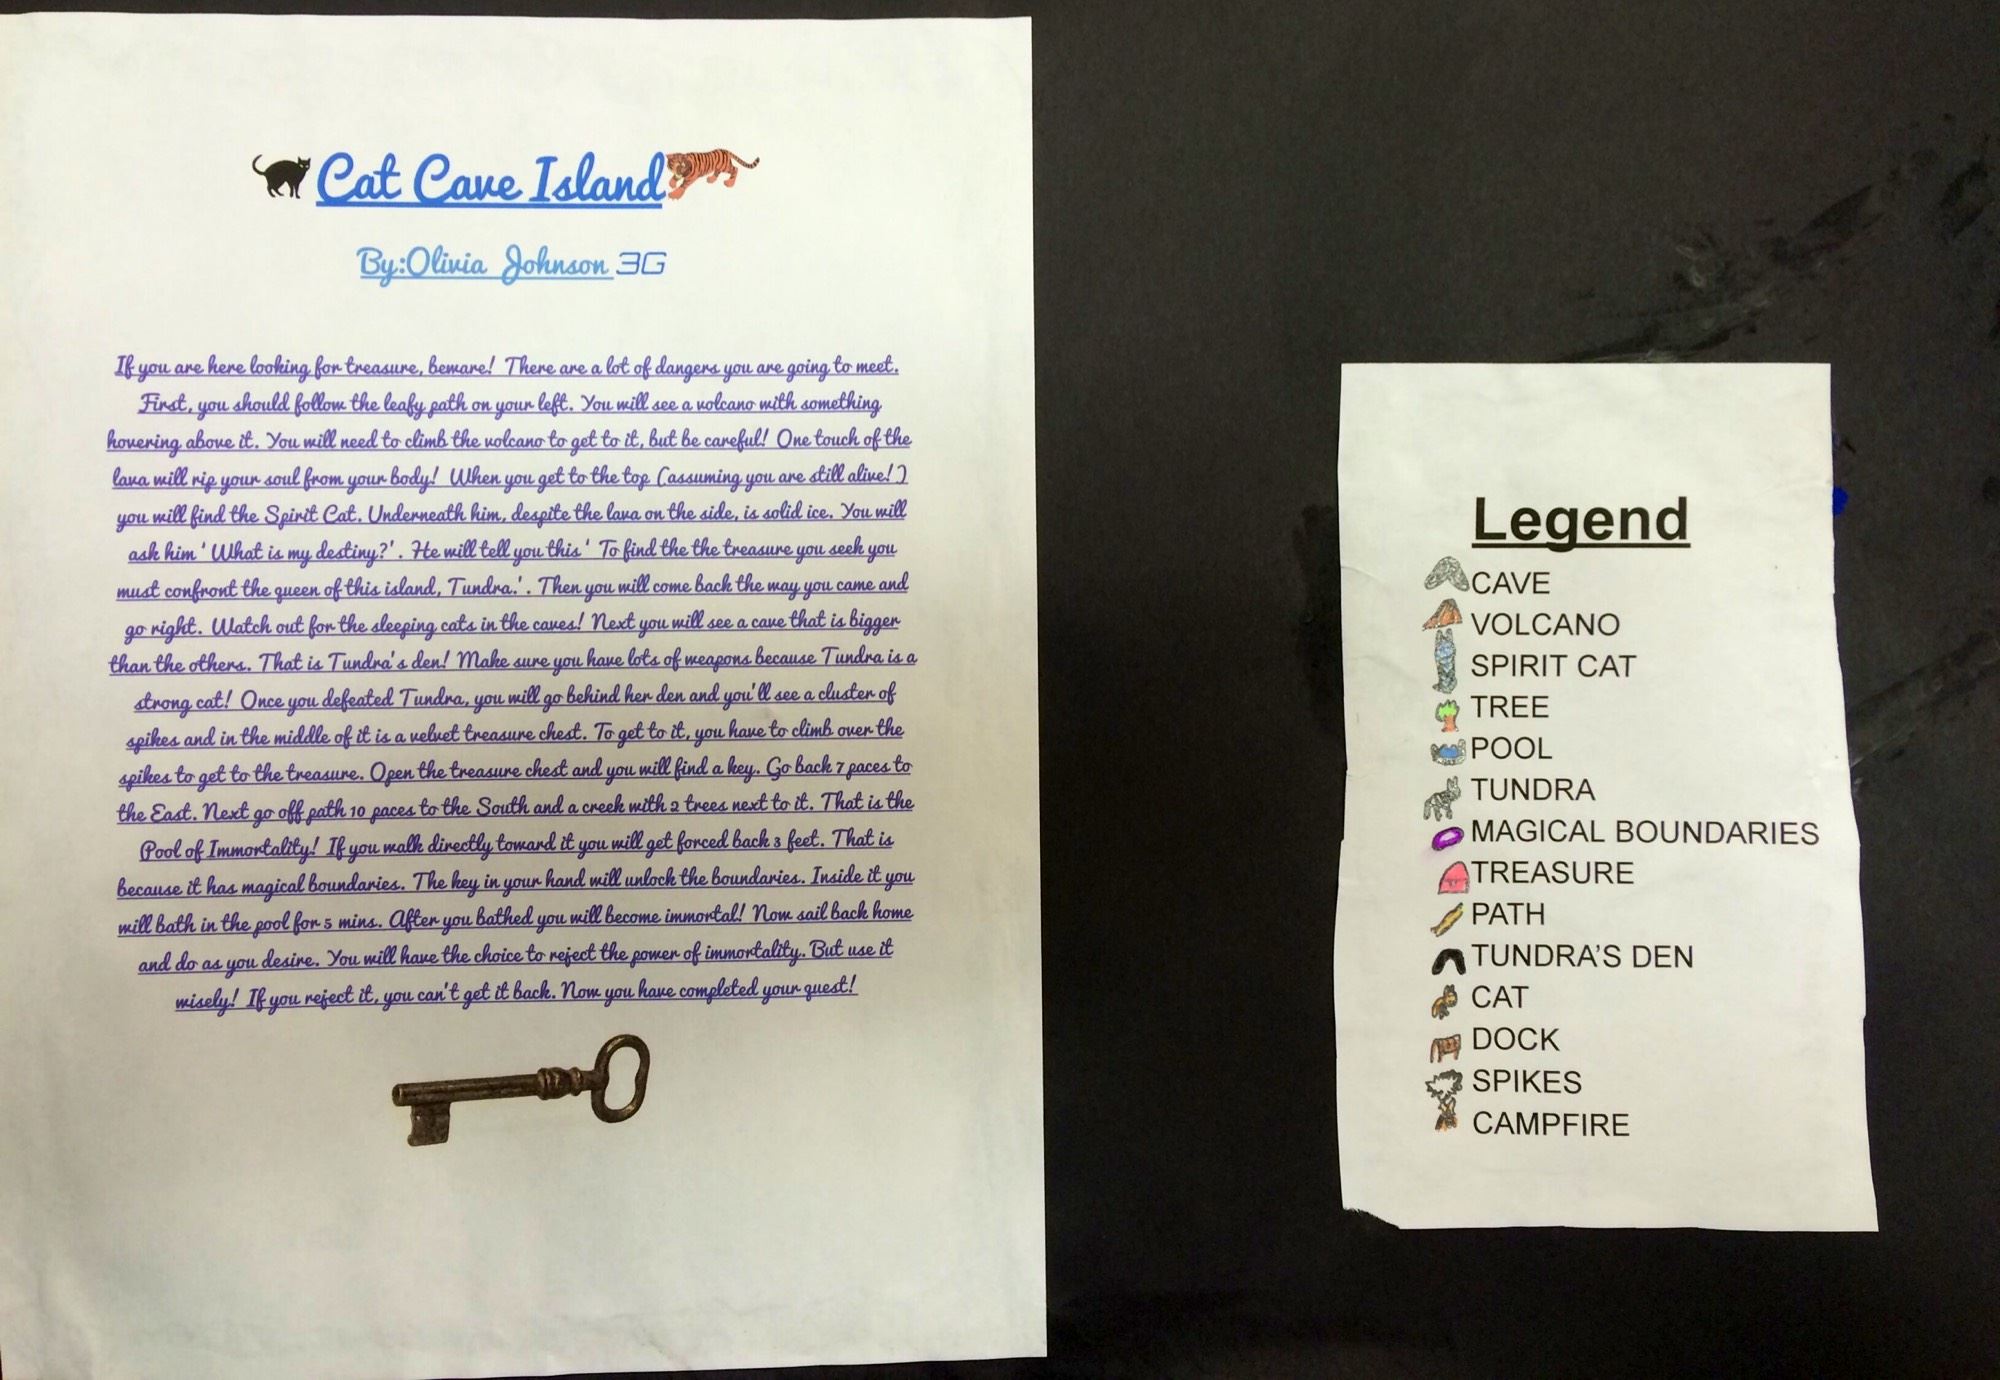 Cat Cave Island
By:Olivia Johnson 3G
If you are here looking for treasure, beware! There are a lot of dangers you are going to meet.
First, you should follow the leafy path on your left. You will see a volcano with something
hovering above it. You will need to climb the volcano to get to it, but be careful! One touch of the
lava will rip your soul from your body! When you get to the top (assuming you are still alive! )
you will find the Spirit Cat. Underneath him, despite the lava on the side, is solid ice. You will
ask him ' What is my destiny?' . He will tell you this ' To find the the treasure you seek you
must confront the queen of this island, Tundra.' . Then you will come back the way you came and
go right. Watch out for the sleeping cats in the caves! Next you will see a cave that is bigger
than the others. That is Tundra's den! Make sure you have lots of weapons because Tundra is a
strong cat! Once you defeated Tundra, you will go behind her den and you'll see a cluster of
spikes and in the middle of it is a velvet treasure chest. To get to it, you have to climb over the
spikes to get to the treasure. Open the treasure chest and you will find a key. Go back 7 paces to
the East. Next go off path 10 paces to the South and a creek with 2 trees next to it. That is the
Pool of Immortality! If you walk directly toward it you will get forced back 3 feet. That is
because it has magical boundaries. The key in your hand will unlock the boundaries. Inside it you
will bath in the pool for 5 mins. After you bathed you will become immortal! Now sail back home
and do as you desire. You will have the choice to reject the power of immortality. But use it
wisely! If you reject it, you can't get it back. Now you have completed your quest!
Legend
CAVE
VOLCANO
SPIRIT CAT
TREE
POOL
TUNDRA
MAGICAL BOUNDARIES
TREASURE
PATH
TUNDRA'S DEN
CAT
DOCK
SPIKES
CAMPFIRE